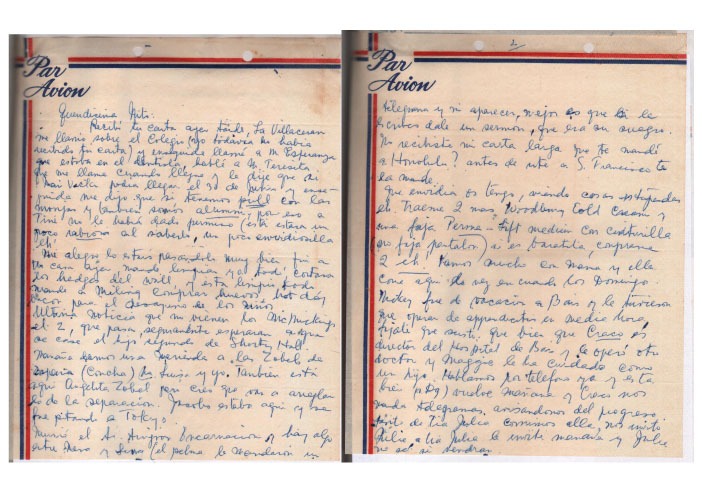 Par
Avion
Queridisima Mita:
Recibí tu carta ayer tarde, La Villaceran
me llamó sobre el Colegio (yo todavía no había
recibido tu carta) y enseguida llamé a M. Esperanza
que estaba en el dentista, hablé a M. Teresita
que me llame cuando llegue y le dije que si
Mari Vacta podia llegar el 30 de Junio y ense-
guida me dijo que si tenemos pull con las
monjas y tambien somos alumni, por eso a
Tiné no le había dado permiso (está estaba un
poco rabiosa al saberlo, un poco envidiosilla
eh!
Me alegro lo estais pasandolo muy bien, fui a
tu casa ayer mando limpiar ya todo, cortaron
los hedges del wall, y esta limpio todo
mando a Miling comprar huevos, hot dog
bacon para el desayuno de los niños
Ultima noticia que no vienen los McMicking,
el 2, que pasa, seguramente esperaran a que
se case el hijo segundo de Shorty Hall.
Mañana damos una merienda a las Zobel de
Zaperia (Concha) Luisa y yo. Tambien está
aqui Angelita Zobel pero creo que van a arreglar
lo de la separacion. Jacobo estaba aqui y
fue pitando a Tokyo.
Murió el Sr. Encarnacion y hay algo
entre y (el pelma le mandaron un
2
Par
Avion
telegrama y ni aparecer, mejor es que si le
escribes dale un sermon, que era su suegro.
No recibiste mi carta larga que te mandé
a Honolulu? antes de irte a S. Francisco te
la mandé.
Que envidia os tengo, viendo cosas estupendas
eh. Traeme 2 mas Woodbury Cold Cream y
una faja Perma-Lift medium con
(no fija pantalon) si es baratita, comprame
2 eh! Vamos mucho con mama y ella
come aqui de vez en cuando los Domingo.
Mickey fue de vacacion a Bais y le tuvieron
que operar de appendicitis en media hora,
fijate que susto, que bien que Creco es
director del Hospital de Bais y le operó otro
doctor y Maggie le ha cuidado como
un hijo. Hablamos por telefono ya y esta
bien (n.Dg) vuelve mañana y Creco nos
manda telegramas, avisandonos del progreso
de Tia Julia comimos alla, nos invitó
Julia a tia Julia le invite mañana y Julie
no sé si vendran.